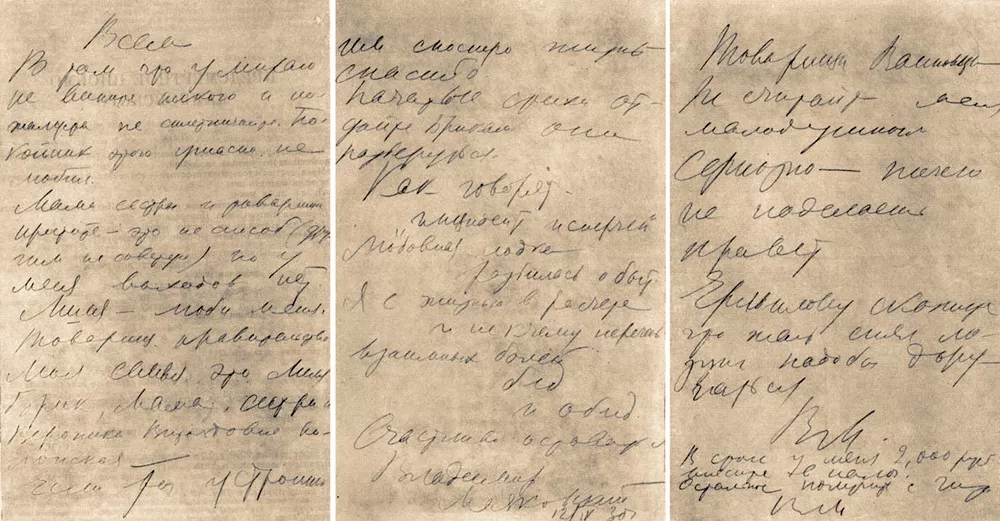 Всем
В том что умираю
не вините никого и по-
жалуйста не сплетничайте. По-
койник этого ужасно не
любил.
Мама сестры и товарищи
простите — это не способ (дру-
гим не советую) но у
меня выходов нет
Лиля — люби меня.
Товарищ правительство
моя семья это Лиля
Брик, мама, сестры и
Вероника Витольдовна По-
лонская
Если ты устроишь
им сносную жизнь
спасибо
Начатые стихи от-
дайте Брикам они
разберутся.
Как говорят —
инцидент исперчен
Любовная лодка
разбилась о быт
Я с жизнью в расчете
и не к чему перечень
взаимных болей
бед
и обид
Счастливо оставаться
Владимир
Маяковский
12/IV 30г
Товарищи Вапповцы
Не считайте меня
малодушным
Сериозно — ничего
не поделаешь
Привет
Ермилову скажите
что жаль снял ло-
зунг надо бы доруг-
аться
В.М.
В столе у меня 2,000 руб
внесите в налог
Остальное получите с Гиз
В.М.